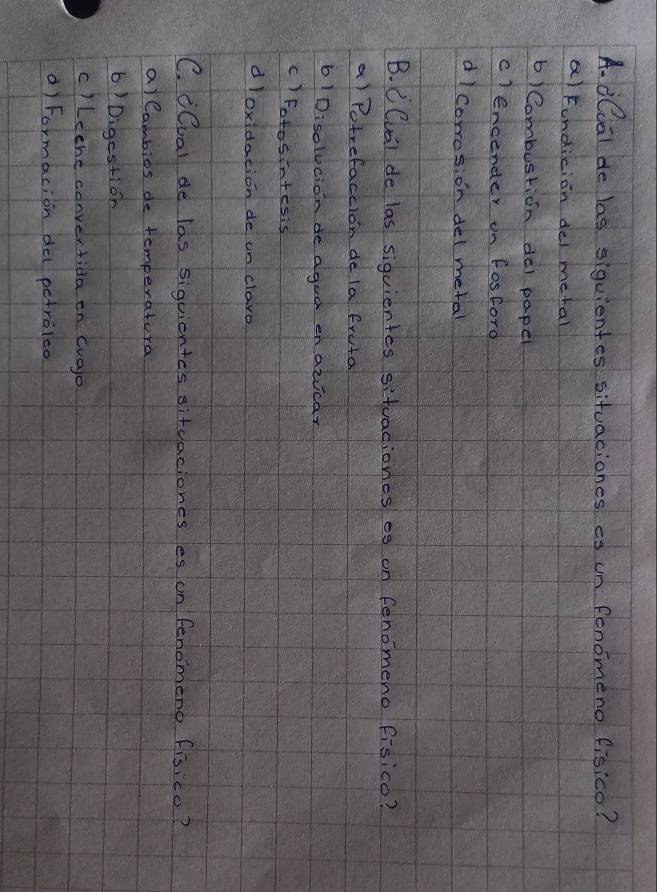 A. ¿Cuál de las siguientes situaciones es un fenómeno físico?
a) Fundición del metal
b) Combustión del papel
c) encender un fosforo
d) Corrosión del metal
B. ¿Cuál de las siguientes situaciones es un fenómeno físico?
a) Putrefacción de la fruta
b) Disolución de agua en azúcar
c) Fotosíntesis
d) oxidación de un clavo
C. ¿Cual de las siguientes situaciones es un fenómeno físico?
a) Cambios de temperatura
b) Digestión
c) Leche convertida en cuajo
d) Formación del petróleo